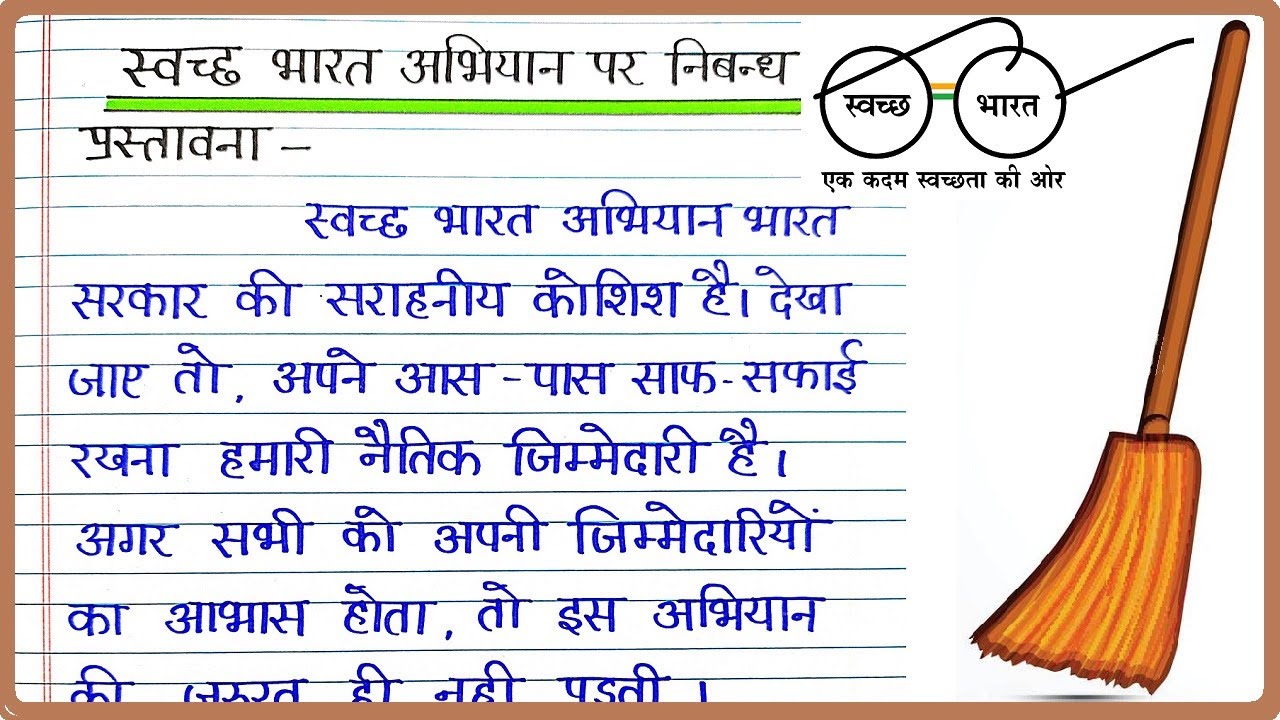 स्वच्छ भारत अभियान पर निबन्ध
प्रस्तावना –
स्वच्छ भारत अभियान भारत
सरकार की सराहनीय कोशिश है। देखा
जाए तो, अपने आस-पास साफ-सफाई
रखना हमारी नैतिक जिम्मेदारी है।
अगर सभी को अपनी जिम्मेदारियों
का आभास होता, तो इस अभियान
की जरुरत ही नही पड़ती।
स्वच्छ भारत
एक कदम स्वच्छता की ओर